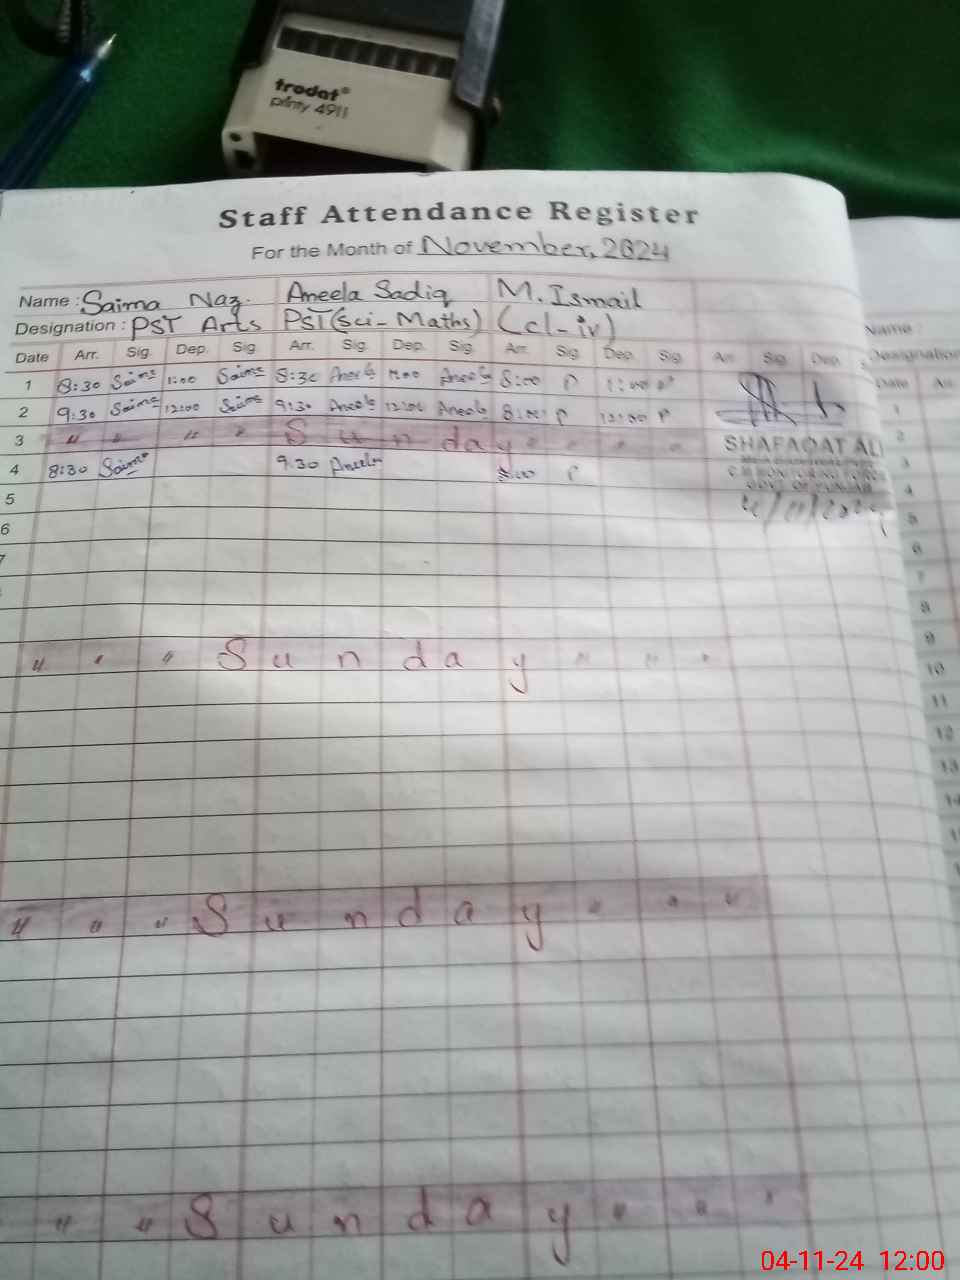 trodat®
printy 4911
Staff Attendance Register
For the Month of November, 2024
Name : Saima Naz. Aneela Sadiq M. Ismail
Designation : PST Arts PST (Sci-Maths) (cl-iv)
Date Arr. Sig. Dep. Sig. Arr. Sig. Dep. Sig. Arr. Sig. Dep. Sig. Arr. Sig. Dep.
1 8:30 Saima 1:00 Saima 8:30 Aneela 1:00 Aneela 8:00 P 1:00 P
2 9:30 Saima 12:00 Saima 9:30 Aneela 12:00 Aneela 8:00 P 12:00 P
3 " " " " Sunday " " " "
SHAFAQAT ALI
4 8:30 Saima 9:30 Aneela 8:00 P
4/11/2024
5
6
7
" " " Sunday " " "
" " " Sunday " " "
" " Sunday " " "
Name :
Designation
Date Arr.
1
2
3
4
5
6
7
8
9
10
11
12
13
04-11-24 12:00